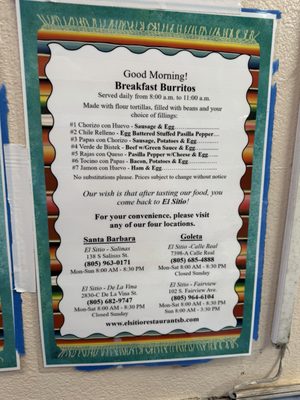 Good Morning!
Breakfast Burritos
Served daily from 8:00 a.m. to 11:00 a.m.
Made with flour tortillas, filled with beans and your
choice of fillings:
#1 Chorizo con Huevo - Sausage & Egg
#2 Chile Relleno - Egg Battered Stuffed Pasilla Pepper
#3 Papas con Chorizo - Sausage, Potatoes & Egg
#4 Verde de Bistek - Beef w/Green Sauce & Egg
#5 Rajas con Queso - Pasilla Pepper w/Cheese & Egg
#6 Tocino con Papas - Bacon, Potatoes & Egg
#7 Jamon con Huevo - Ham & Egg
No substitutions please. Prices subject to change without notice
Our wish is that after tasting our food, you
come back to El Sitio!
For your convenience, please visit
any of our four locations.
Santa Barbara
El Sitio - Salinas
138 S Salinas St.
(805) 963-0171
Mon-Sun 8:00 AM - 8:30 PM
El Sitio - De La Vina
2830-C De La Vina St.
(805) 682-9747
Mon-Sat 8:00 AM - 8:30 PM
Closed Sunday
Goleta
El Sitio -Calle Real
7398-A Calle Real
(805) 685-4888
Mon-Sat 8:00 AM - 8:30 PM
Closed Sunday
El Sitio - Fairview
102 S. Fairview Ave.
(805) 964-6104
Mon-Sat 8:00 AM - 8:30 PM
Sun 8:00 AM - 3:30 PM
www.elsitiorestaurantsb.com